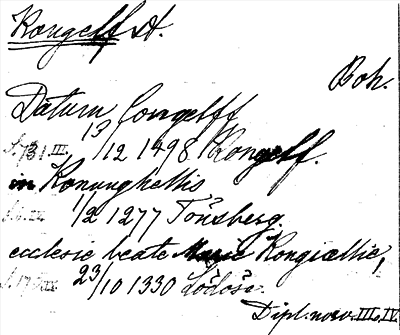 Kongelf st.
Boh.
Datum Congelff
13/12 1498 Kongelf.
in Konunghellis
1/2 1277 Tönsberg.
ecclesie beate Marie Kongiællie,
23/10 1330 Lödöse.
Dipl. norv. III, IV.